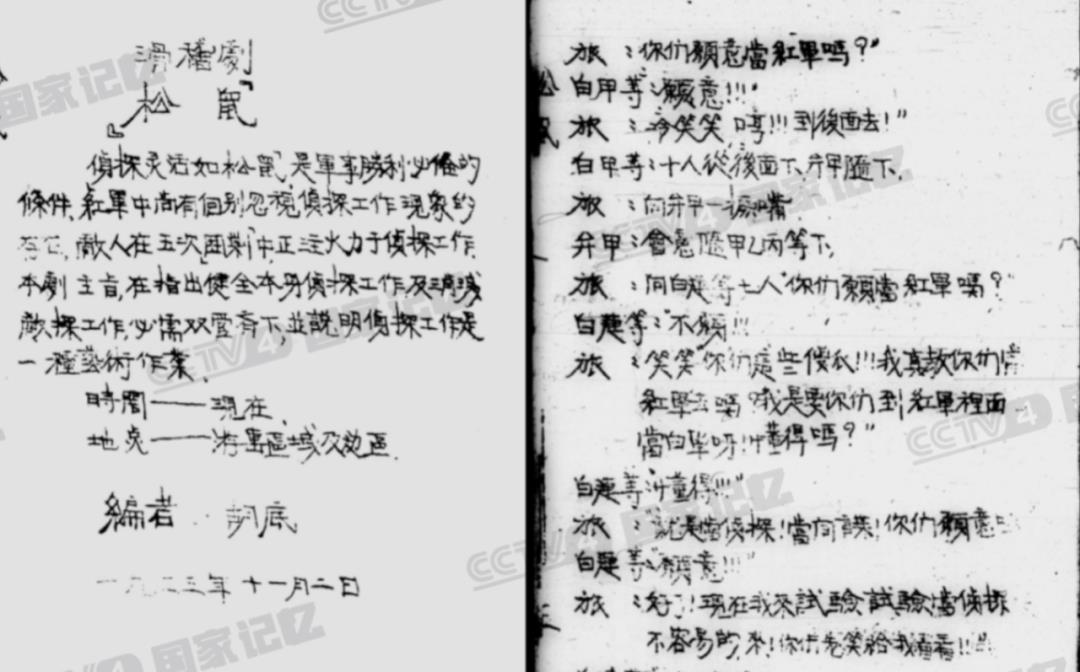 滑稽劇
『松鼠』
偵探灵活如松鼠,是軍事勝利必俻的
條件,紅軍中尚有個别忽視偵探工作現象的
存在,敵人在五次"圍剿"中,正注火力于偵探工作,
本劇主旨,在指出健全本身偵探工作及消滅
敵探工作,必需双管齊下,並説明偵探工作是
一種藝術作業.
時間——現在.
地点——游擊區域及敌區.
編者 胡底
一九三三年十一月二日
旅:"你们願意當紅軍嗎?"
白甲等:"願意!!!"
旅:冷笑笑"哼!!!到後面去!"
白甲等:十人從後面下,弁甲隨下,
旅:向弁甲一噘嘴.
弁甲:會意隨甲乙丙等下,
旅:向白起等七人"你们願當紅軍嗎?"
白起等:"不願!!!"
旅:笑笑"你们這些傻瓜!!!我真教你们當
紅軍去嗎?我是要你们到紅軍裡面
當白軍呀!!懂得嗎?"
白起等:"懂得!!!"
旅:"就是當偵探!當间諜!你们願意
白起等:"願意!!!"
旅:"好了!現在我來試驗試驗,當偵探
不容易的,來!你们先笑给我看看!!"
CCTV4 国家记忆
CCTV4 国家记忆
CCTV4 国家记忆
CCTV4 国家记忆
CCTV4 国家记忆